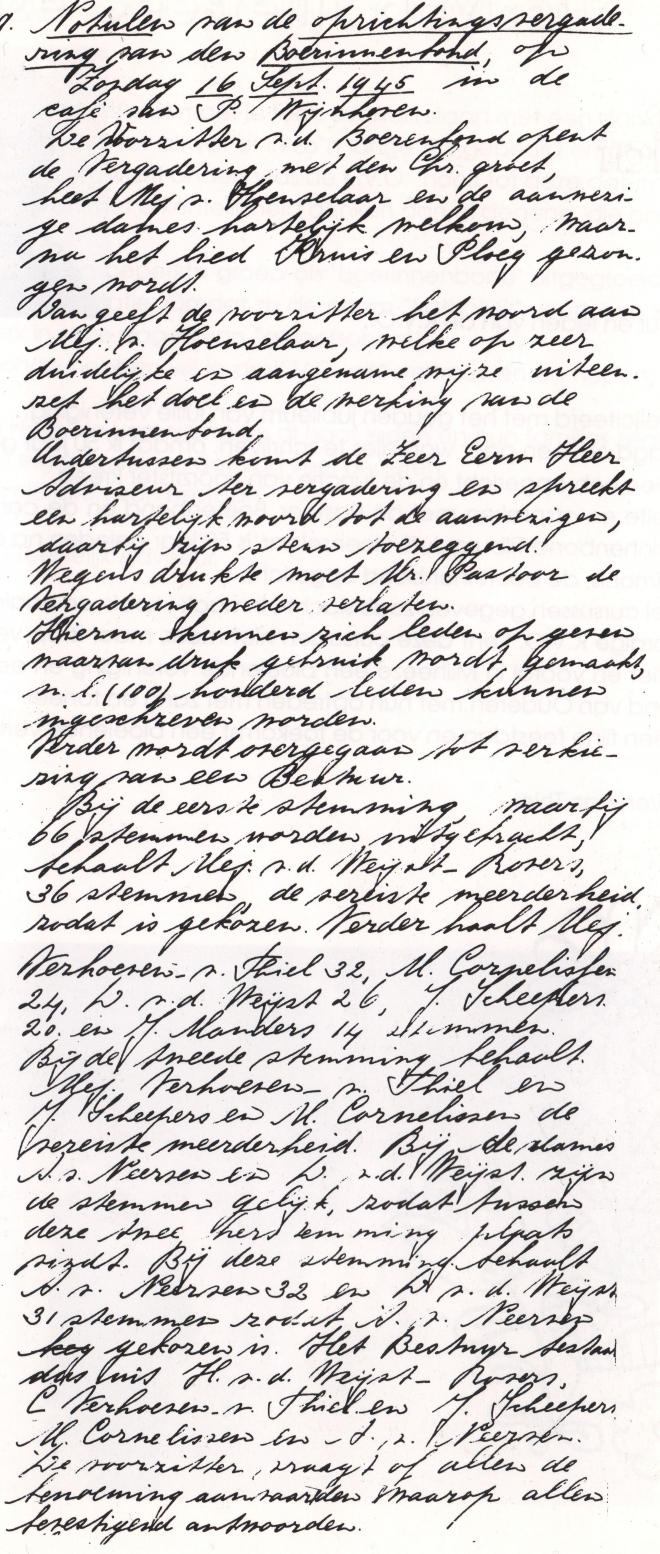 Notulen van de oprichtingsvergade-
ring van den Boerinnenbond, op
Zondag 16 Sept. 1945 in de
café van P. Wijnhoven.
De Voorzitter v.d. Boerenbond opent
de Vergadering met den Chr. groet,
heet Mej v. Hoenselaar en de aanwezi-
ge dames hartelijk welkom, waar-
na het lied Kruis en Ploeg gezon-
gen wordt.
Dan geeft de voorzitter het woord aan
Mej. v. Hoenselaar, welke op zeer
duidelijke en aangename wijze uiteen-
zet het doel en de werking van de
Boerinnenbond.
Ondertussen komt de Zeer Eerw. Heer
Adviseur ter vergadering en spreekt
een hartelijk woord tot de aanwezigen,
daarbij zijn steun toezeggend.
Wegens drukte moet Mr. Pastoor de
Vergadering weder verlaten.
Hierna kunnen zich leden op geven
waarvan druk gebruik wordt gemaakt,
n.l. (100) honderd leden kunnen
ingeschreven worden.
Verder wordt overgegaan tot verkie-
zing van een Bestuur.
Bij de eerste stemming, waarbij
66 stemmen worden uitgebracht,
behaalt Mej. v.d. Weijst-Rovers,
36 stemmen, de vereiste meerderheid,
zodat is gekozen. Verder haalt Mej.
Verhoeven-v. Thiel 32, M. Cornelissen
24, D. v.d. Weijst 26, J. Scheepers
20. en J. Manders 14 stemmen.
Bij de tweede stemming behaalt
Mej. Verhoeven-v. Thiel en
J. Scheepers en M. Cornelissen de
vereiste meerderheid. Bij de dames
A.v. Neerven en D. v.d. Weijst zijn
de stemmen gelijk, zodat tussen
deze twee herstemming plaats
vindt. Bij deze stemming behaalt
A. v. Neerven 32 en D v. d. Weijst
31 stemmen zodat A. v. Neerven
gekozen is. Het Bestuur bestaat
dus uit H. v.d. Weijst-Rovers,
C Verhoeven-v. Thiel en J. Scheepers
M. Cornelissen en A. v. Neerven.
De voorzitter vraagt of allen de
benoeming aanvaarden waarop allen
bevestigend antwoorden.